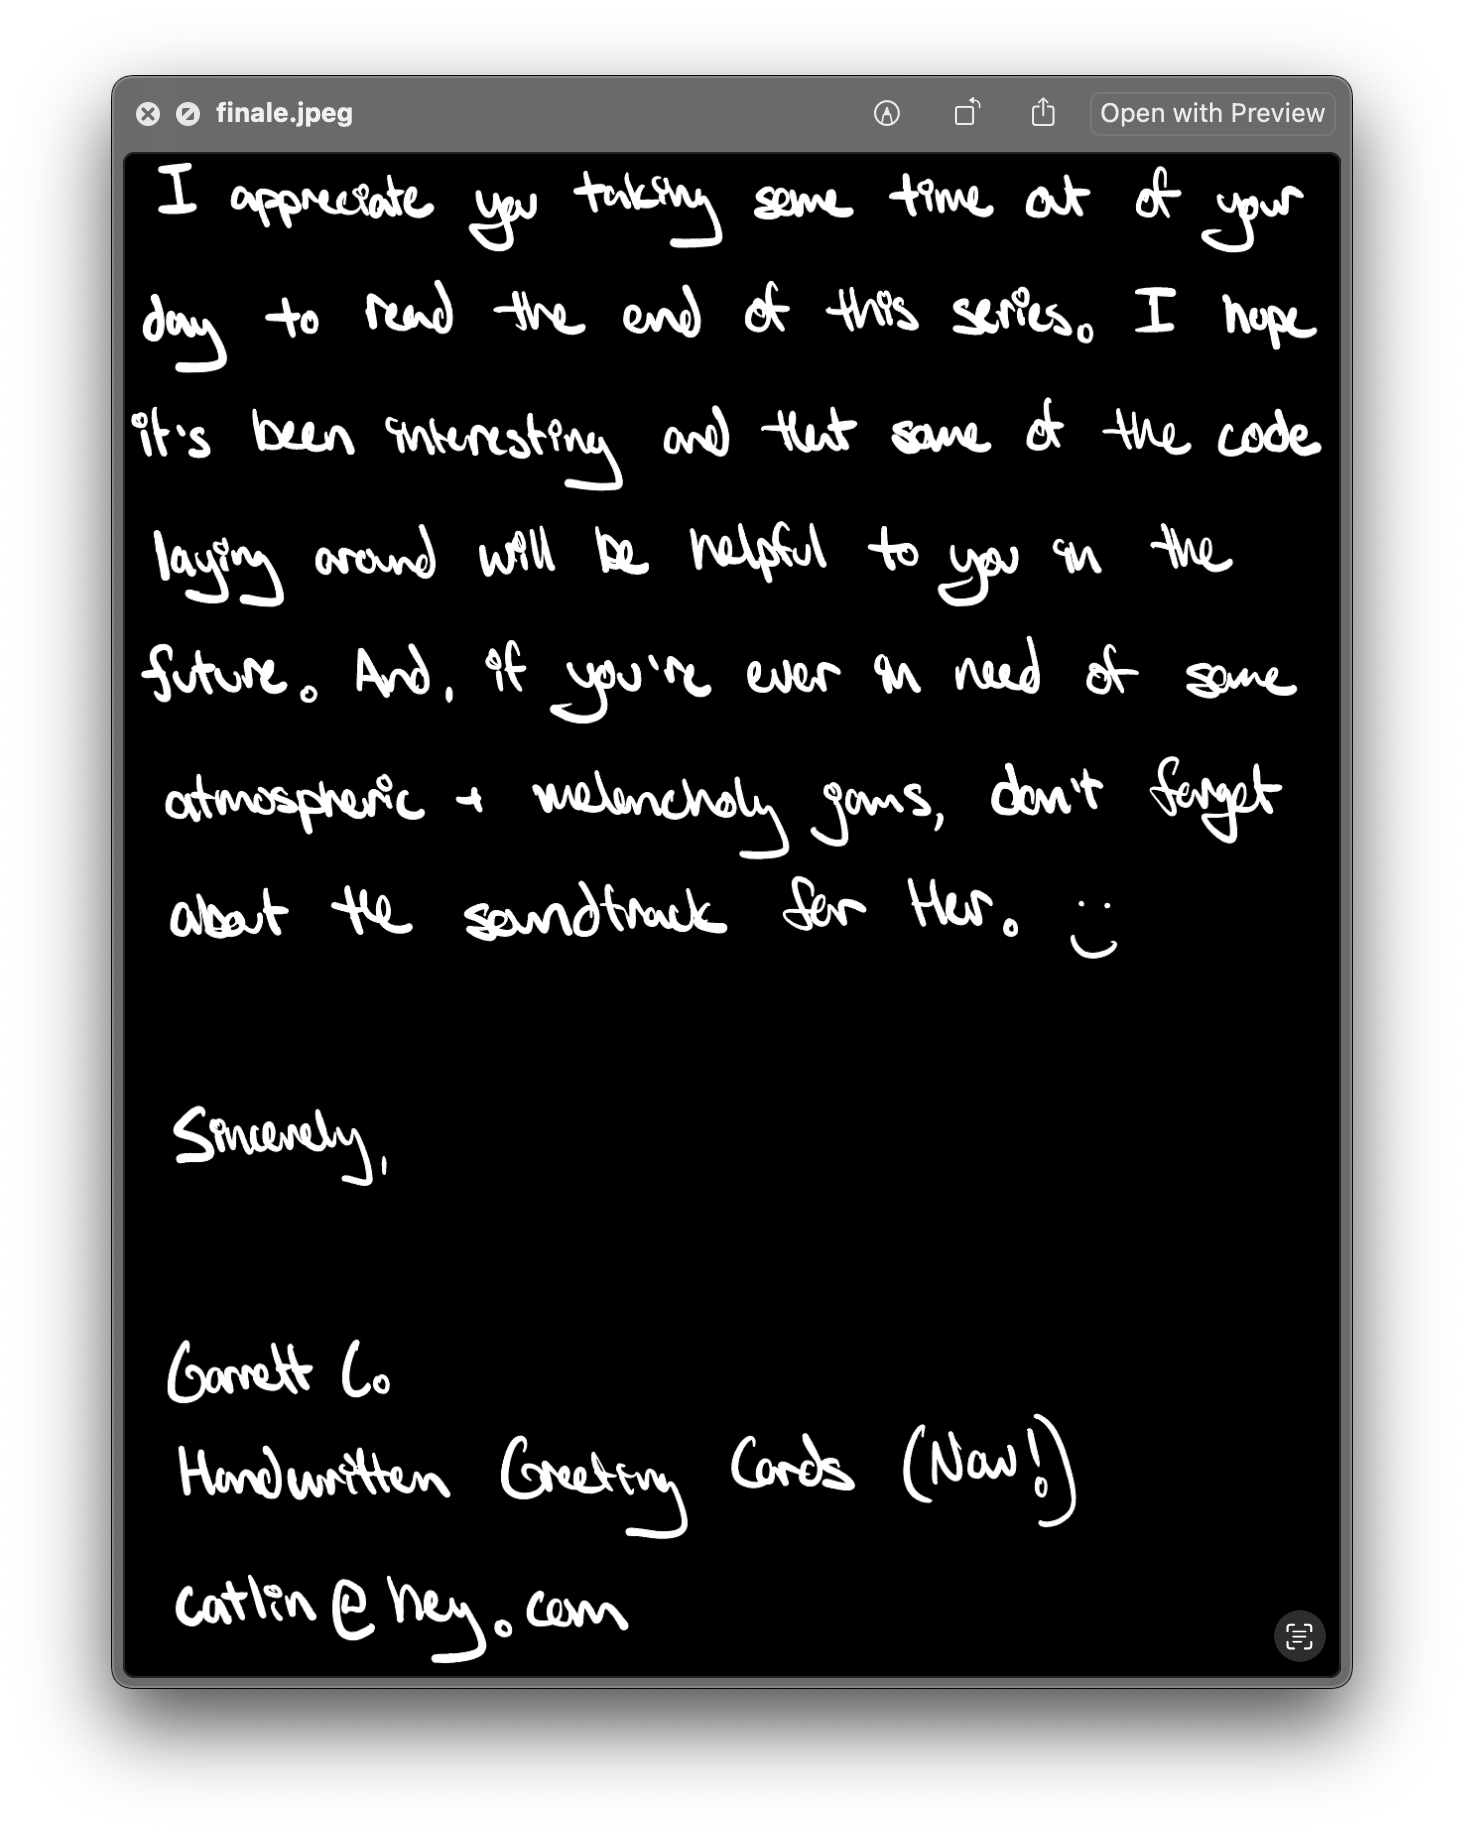 finale.jpeg
Open with Preview
I appreciate you taking some time out of your
day to read the end of this series. I hope
it's been interesting and that some of the code
laying around will be helpful to you in the
future. And, if you're ever in need of some
atmospheric + melancholy jams, don't forget
about the soundtrack for Her. :)
Sincerely,
Garrett C.
Handwritten Greeting Cards (Now!)
catlin@hey.com